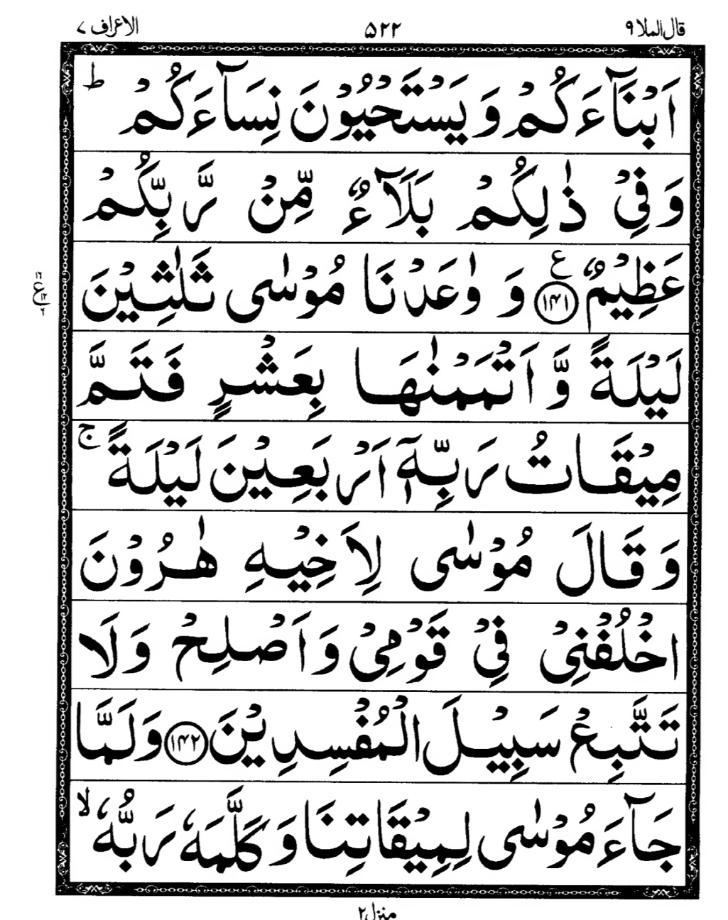 قال الملا ٩ ٥٢٢ الاعراف ٧
اَبْنَآءَكُمْ وَ يَسْتَحْيُوْنَ نِسَآءَكُمْ ؕ
وَ فِیْ ذٰلِكُمْ بَلَآءٌ مِّنْ رَّبِّكُمْ
عَظِیْمٌ ﴿۱۴۱﴾ ع وَ وٰعَدْنَا مُوْسٰی ثَلٰثِیْنَ
لَیْلَةً وَّ اَتْمَمْنٰهَا بِعَشْرٍ فَتَمَّ
مِیْقَاتُ رَبِّهٖۤ اَرْبَعِیْنَ لَیْلَةً ۚ
وَ قَالَ مُوْسٰی لِاَخِیْهِ هٰرُوْنَ
اخْلُفْنِیْ فِیْ قَوْمِیْ وَ اَصْلِحْ وَ لَا
تَتَّبِعْ سَبِیْلَ الْمُفْسِدِیْنَ ﴿۱۴۲﴾ وَ لَمَّا
جَآءَ مُوْسٰی لِمِیْقَاتِنَا وَ كَلَّمَهٗ رَبُّهٗ ۙ
منزل ۲